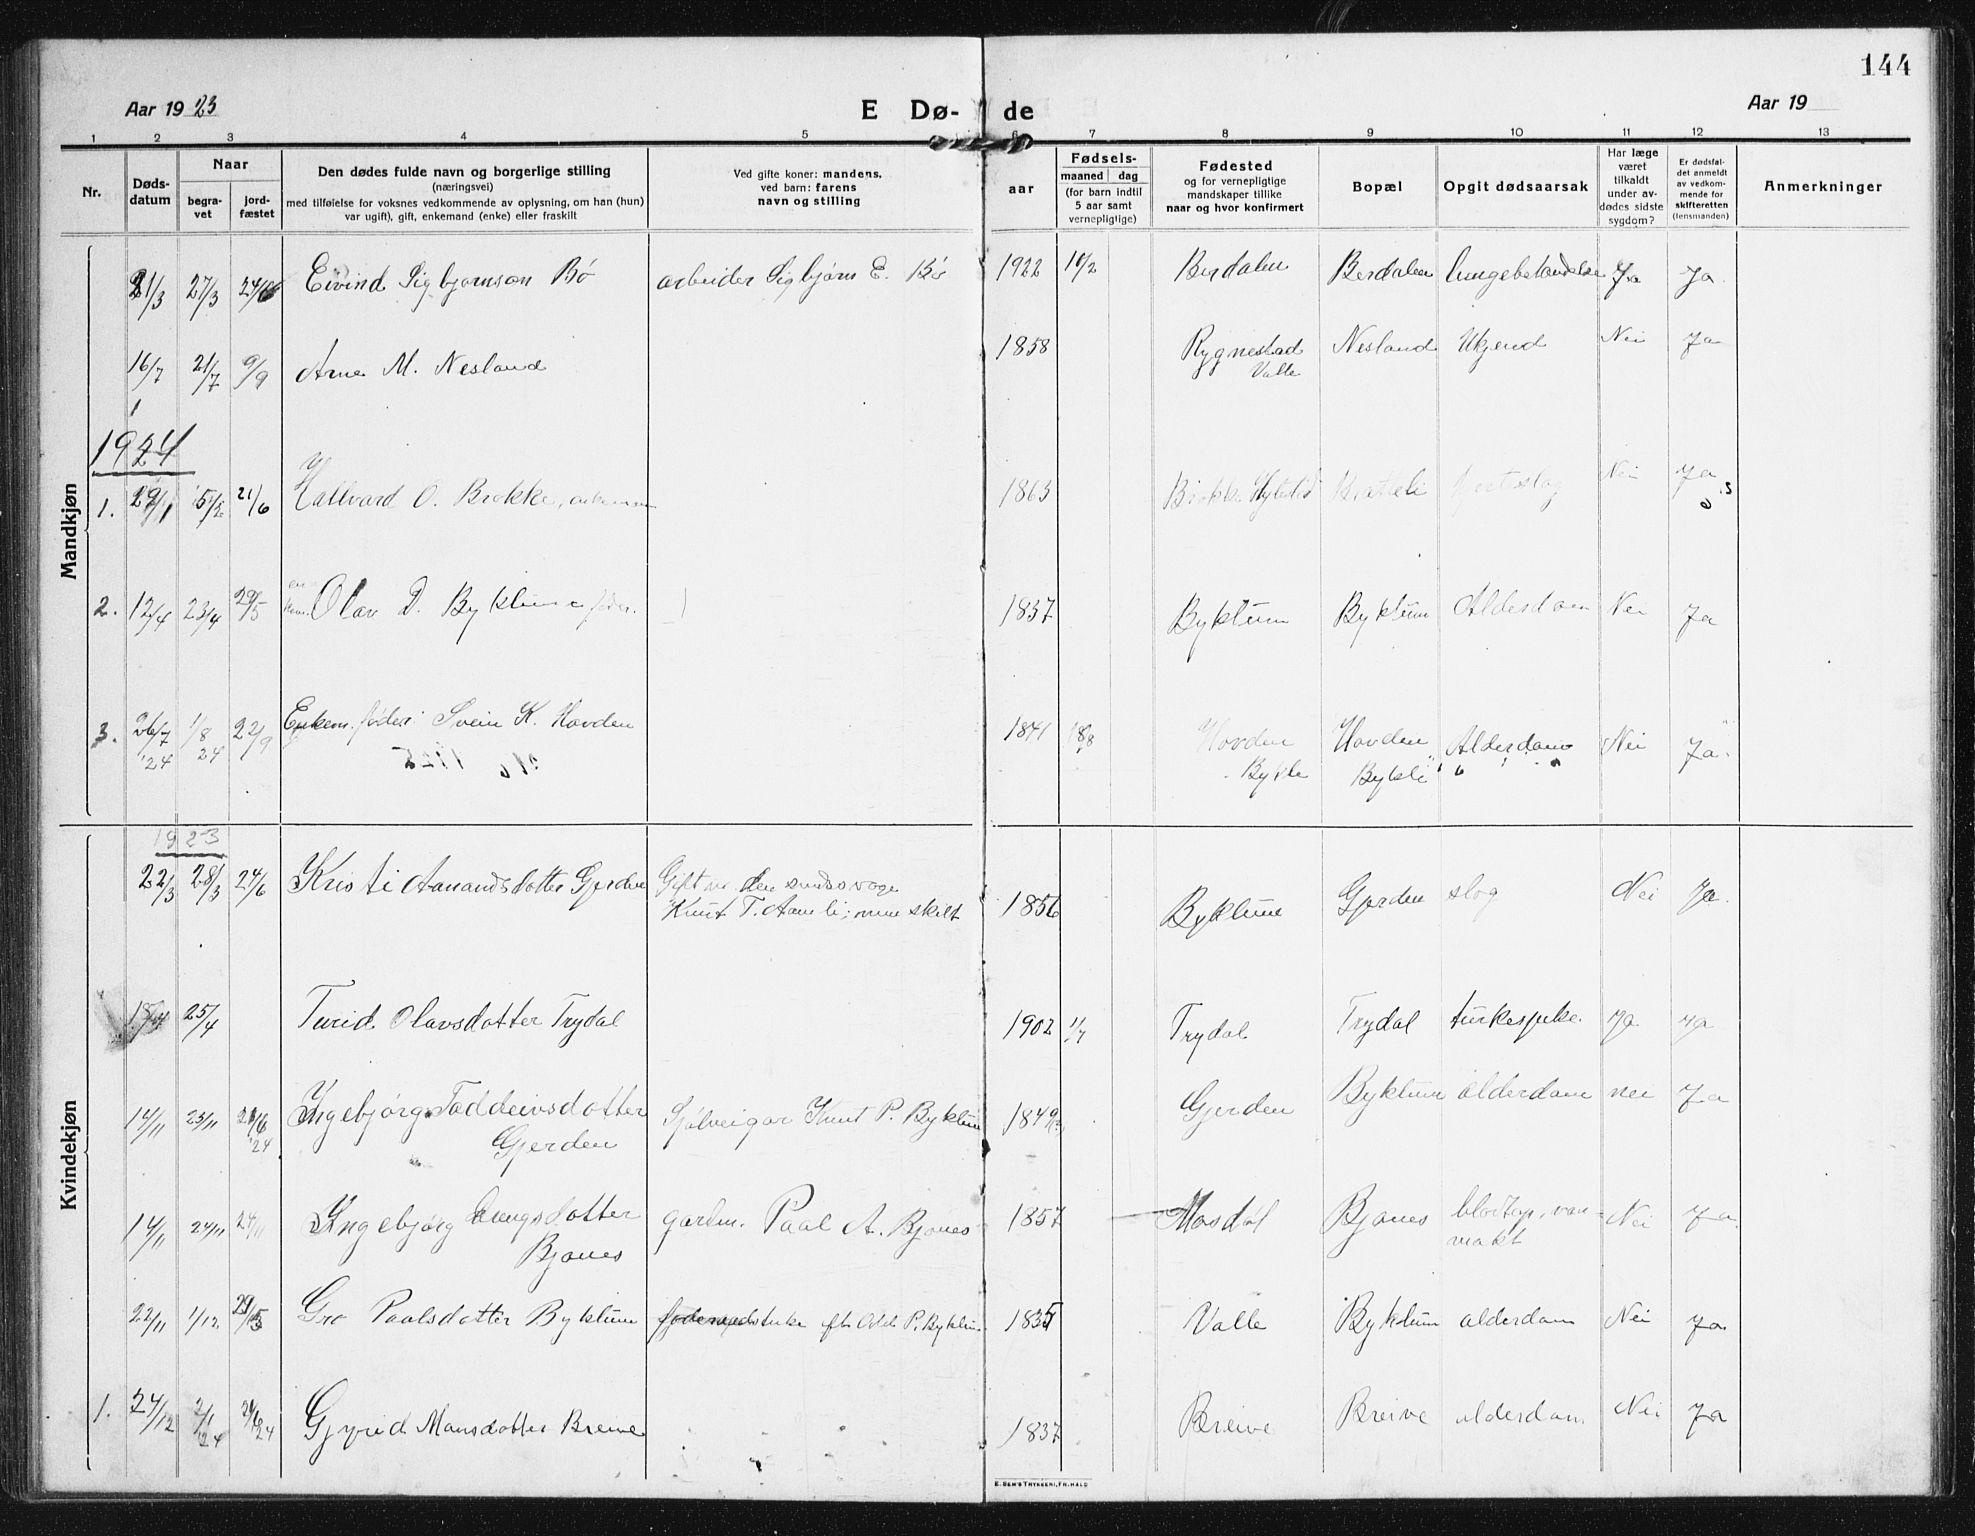 144
Aar 1923
E Dø- de
Aar 19
1 2 3 4 5 6 7 8 9 10 11 12 13
Nr.
Døds-
datum
Naar
begra-
vet
jord-
fæstet
Den dødes fulde navn og borgerlige stilling
(næringsvei)
med tilføielse for voksnes vedkommende av oplysning, om han (hun)
var ugift), gift, enkemand (enke) eller fraskilt
Ved gifte koner: mandens,
ved barn: farens
navn og stilling
aar
Fødsels-
maaned dag
(for barn indtil
5 aar samt
vernepligtige)
Fødested
og for vernepligtige
mandskaper tillike
naar og hvor konfirmert
Bopæl
Opgit dødsaarsak
Har læge
været
tilkaldt
under av-
dødes sidste
sygdom?
Er dødsfal-
det anmeldt
av vedkom-
mende for
skifteretten
(lensmanden)
Anmerkninger
Mandkjøn
21/3 27/3 24/6 Eivind Sigbjørnson Bø arbeider Sigbjørn E. Bø 1922 Berdalen Berdalen lungebetændelse Ja Ja.
16/7 21/7 9/9 Arne M. Nesland 1858 Rygnestad Nesland Ukjend Nei Ja
Valle
1924
1. 29/1 5/2 21/6 Hallvard O. Brokke, 1863 Brokke Hylestad Bratteli Nei Ja
2. 12/4 23/4 29/5 Olav D. Byklum 1837 Byklum Byklum Alderdom Nei Ja
3. 26/7 1/8 22/9 Enkem. føder. Svein K. Hovden 1841 18/8 Hovden Hovden Alderdom Nei Ja.
'24 24 Bykle Bykle
Kvindekjøn
1923
22/3 28/3 24/6 Kristi Aanundsdotter Gjerden Gift m. den sindssvage
Knut T. Aamli; men skilt 1856 Byklum Gjerden slag Nei Ja.
18/4 25/4 Turid Olavsdotter Trydal 1902 1/7 Trydal Trydal Ja Ja
14/11 23/11 21/6 Ingebjørg Taddeivsdotter Sjølveigar Knut P. Byklum 1849 Gjerden Byklum alderdom nei Ja
24 Gjerden
14/11 24/11 24/11 Ingebjørg Drengsdotter gardm. Paal A. Bjones 1857 Mosdøl Bjones Nei Ja.
Bjones
22/11 1/12 29/5 Gro Paalsdotter Byklum enke eft. Odd P. Byklum 1835 Valle Byklum alderdom Nei Ja
1. 24/12 2/1 24/6 Gyrid Monsdotter Breive 1837 Breive Breive alderdom Nei Ja
24 24
E. SEM'S TRYKKERI, FR.HALD